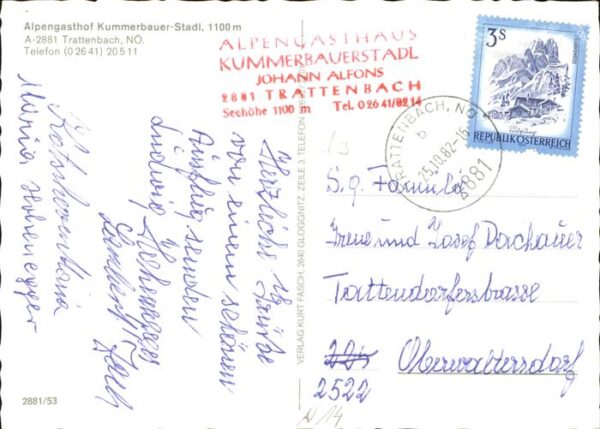 Alpengasthof Kummerbauer-Stadl, 1100 m
A-2881 Trattenbach, NÖ.
Telefon (0 26 41) 20 5 11
ALPENGASTHAUS
KUMMERBAUERSTADL
JOHANN ALFONS
2881 TRATTENBACH
Seehöhe 1100 m Tel. 0 26 41/82 14
3S
REPUBLIK ÖSTERREICH
TRATTENBACH, NÖ
b
25.10.82-16
2881
Herzliche Grüße
von einem schönen
Ausflug senden
Ludwig
Maria
VERLAG KURT FASCH, 2640 GLOGGNITZ, ZEILE 3, TELEFON
S.g. Familie
Irene und Josef Dachauer
Tattendorferstrasse
2522 Oberwaltersdorf
2881/53